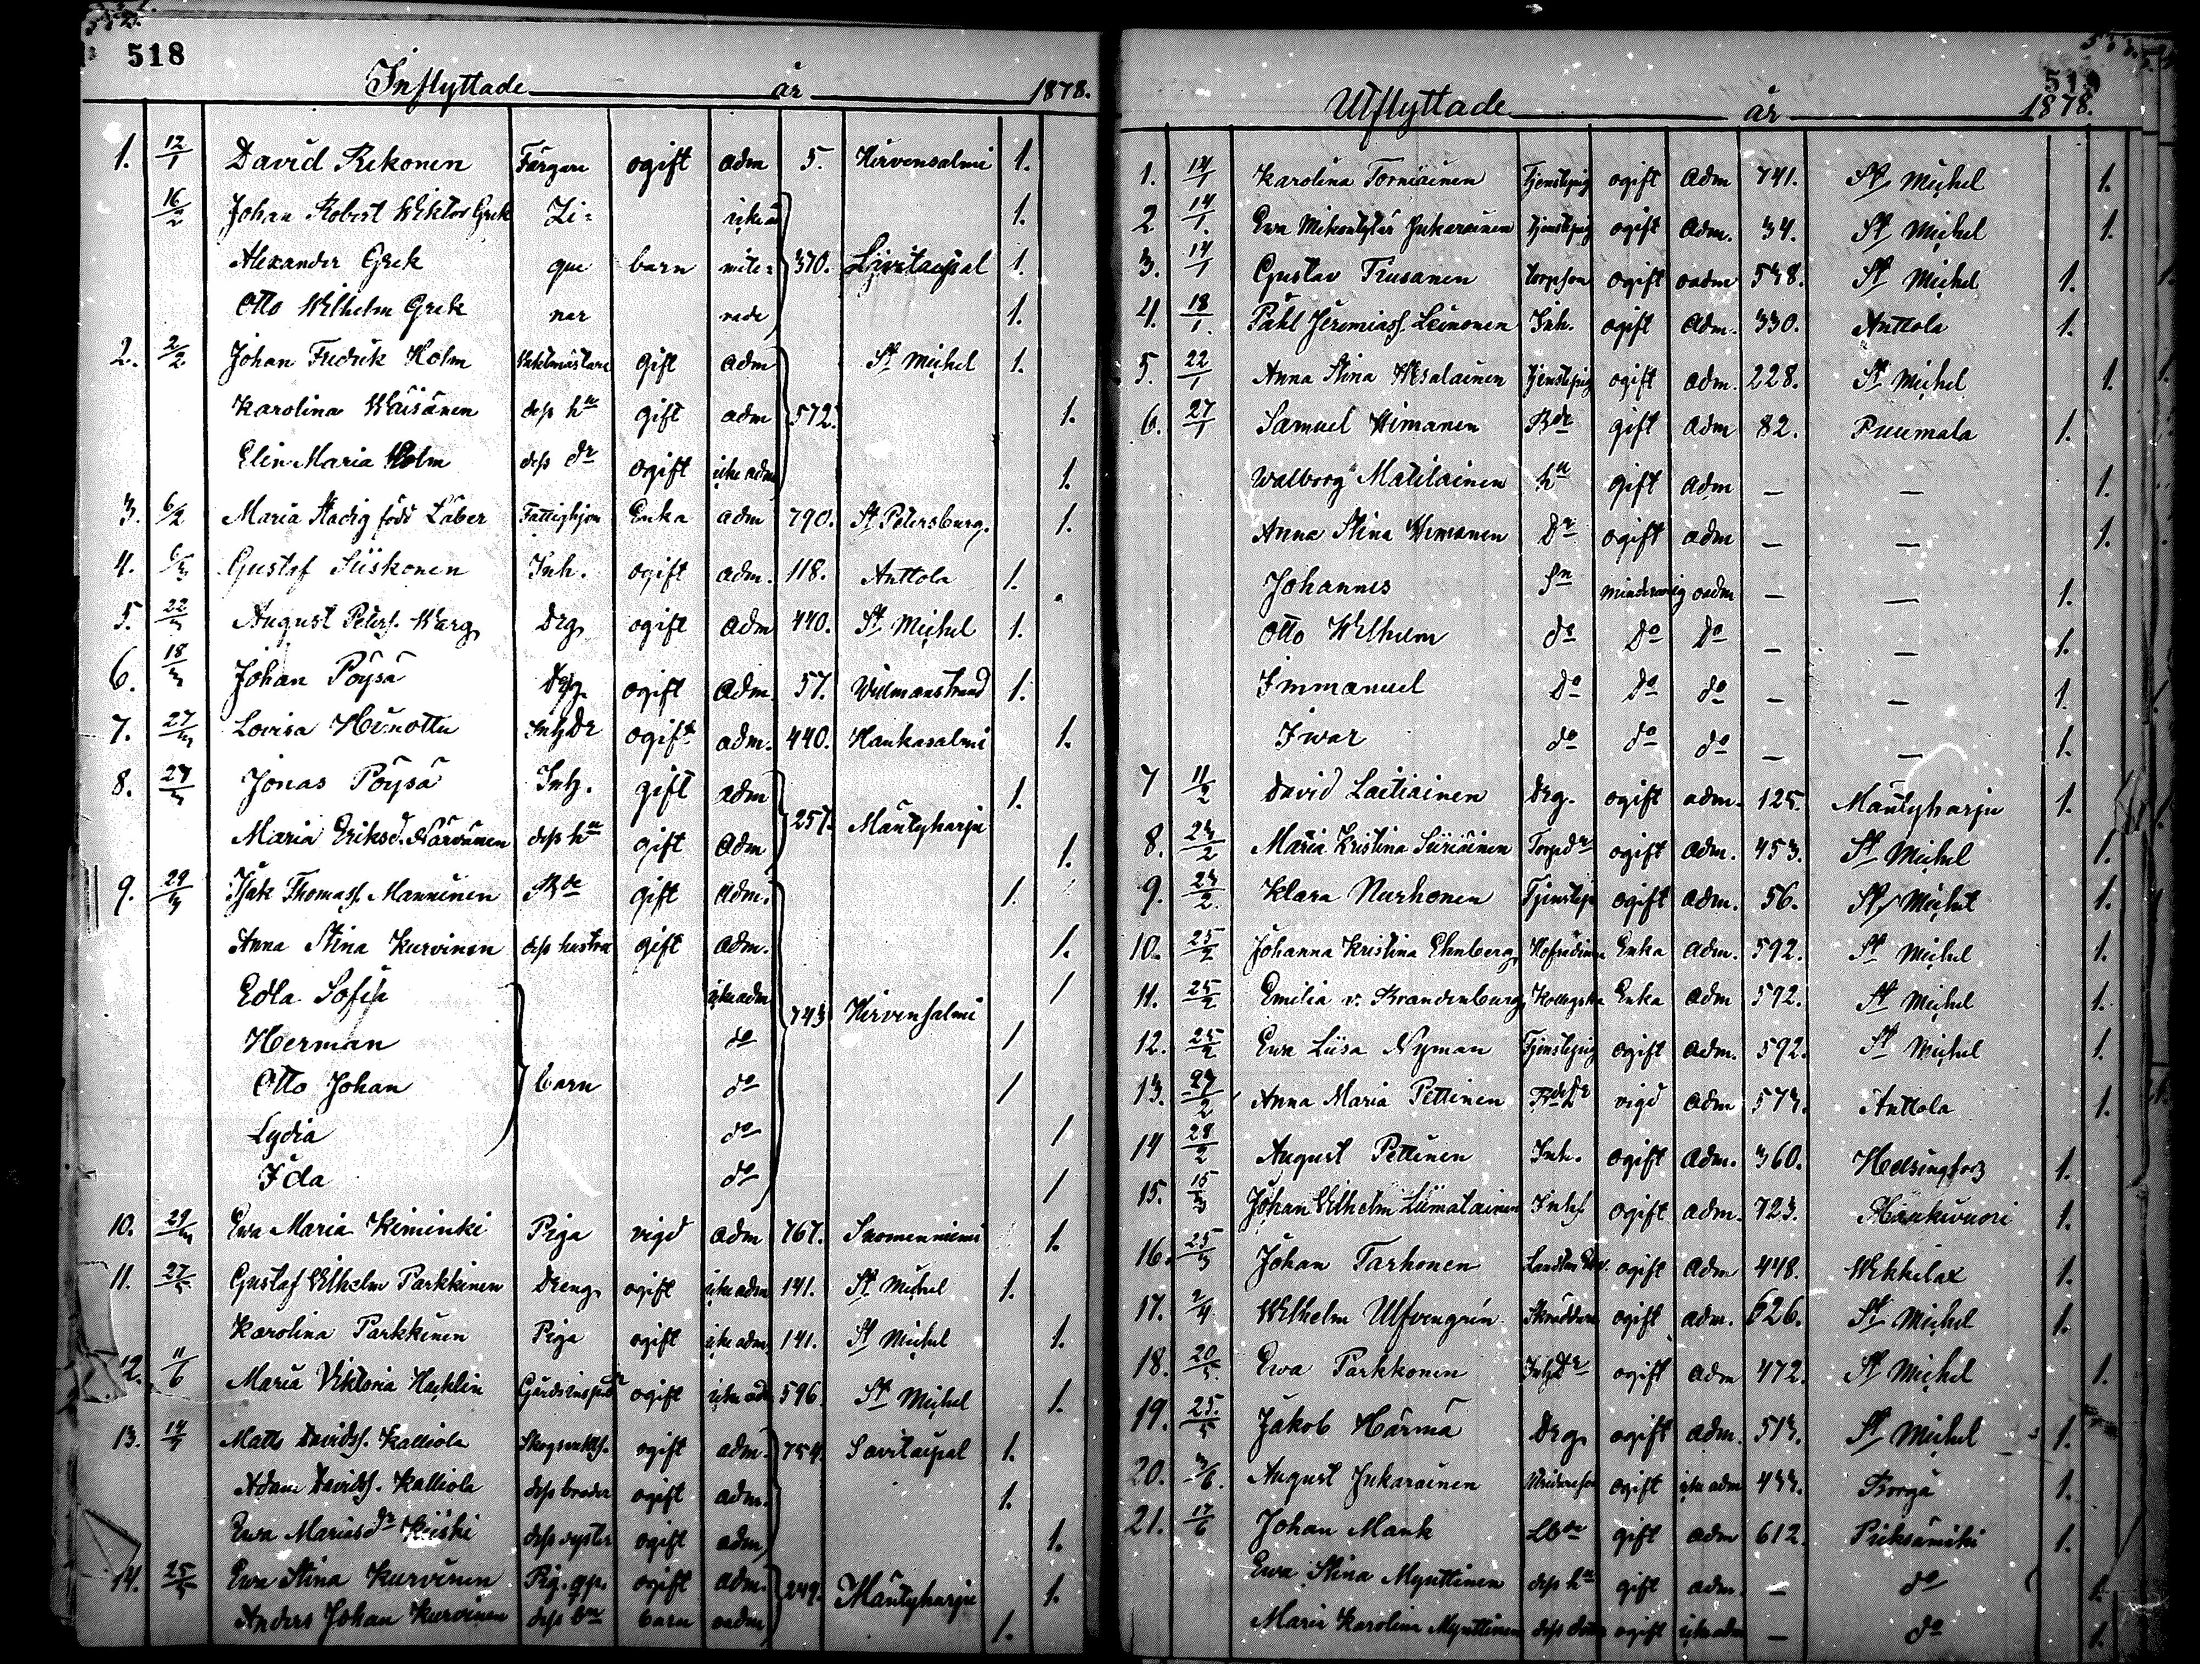 518
Inflyttade år 1878.
1. 12/1 David Rekonen Färgare ogift adm 5. Hirvensalmi 1.
16/2 Johan Robert Wiktor Grek Zi- icke ad 1.
Alexander Grek ge barn mite- 370. Savitaipal 1.
Otto Wilhelm Grek nar rade 1.
2. 2/2 Johan Fredrik Holm Vaktmästare gift adm St Michel 1.
Karolina Wäisänen dess hu gift adm 572. 1.
Elin Maria Holm dess dr ogift icke adm 1.
3. 6/2 Maria Stadig född Läber Fattighjon Enka adm 790. St Petersburg. 1.
4. 6/3 Gustaf Siiskonen Inh. ogift adm. 118. Anttola 1.
5. 22/3 August Peterss. Warg Drg ogift adm 440. St Michel 1.
6. 18/3 Johan Pöysä Drg ogift adm. 57. Willmanstrand 1.
7. 27/3 Lovisa Hinottu Inh Dr ogift adm. 440. Hankasalmi 1.
8. 27/3 Jonas Pöysä Inh. gift adm 257. Mäntyharju 1.
Maria Eriksd. Närvänen dess hu gift adm 1.
9. 29/3 Isak Thomass. Manninen Bde gift adm. 1.
Anna Stina Kurvinen dess hustru gift adm. 1.
Edla Sofia icke adm 743 Hirvensalmi 1
Herman do 1
Otto Johan barn do 1
Lydia do 1
Ida do 1
10. 29/3 Ewa Maria Kiminki Piga vigd adm 767. Suomenniemi 1.
11. 27/5 Gustaf Wilhelm Parkkinen Dreng ogift icke adm 141. St Michel 1.
Karolina Parkkinen Piga ogift icke adm. 141. St Michel 1.
12. 11/6 Maria Viktoria Hacklin ogift icke adm 596. St Michel 1.
13. 14/5 Matts Davidss. Kalliola ogift adm. 754. Savitaipal 1.
Adam Davidss. Kalliola dess broder ogift adm. 1.
Ewa Mariasdr Kiiski dess syster ogift adm 1.
14. 25/5 Ewa Stina Kurvinen Pig. ogift adm. 249. Mäntyharju 1.
Anders Johan Kurvinen dess barn oadm 1.
519
Utflyttade år 1878.
1. 14/1 Karolina Torniainen Tjenstepig ogift adm 741. St Michel 1.
2 14/1. Ewa Mikontytär Jukarainen Tjenstepig ogift adm. 34. St Michel 1.
3. 14/1 Gustav Trusanen torpson ogift oadm 538. St Michel 1.
4. 18/1. Påhl Jeremiass. Leinonen Inh. ogift adm. 330. Anttola 1.
5. 22/1 Anna Stina Wesalainen Tjenstepig ogift adm. 228. St Michel 1.
6. 27/1 Samuel Himanen Bde gift adm 82. Puumala 1.
Walborg Matilainen hu gift adm — — 1.
Anna Stina Himanen Dr ogift adm — — 1.
Johannes Sn minderårig oadm — — 1.
Otto Wilhelm do do do — — 1.
Immanuel do do do — — 1.
Iwar do do do — — 1.
7 11/2 David Laitiainen Drg. ogift adm. 125. Mäntyharju 1.
8. 23/2 Maria Kristina Siiriäinen Torpdr ogift adm. 453. St Michel 1.
9. 23/2. Klara Nurhonen Tjenstepi ogift adm. 56. St Michel 1.
10. 25/2 Johanna Kristina Ehnberg Enka adm. 592. St Michel 1.
11. 25/2 Emilia v. Brandenburg Enka adm 592. St Michel 1.
12. 25/2 Ewa Liisa Nyman Tjenstepig ogift adm. 592. St Michel 1.
13. 27/2 Anna Maria Pettinen vigd adm 573. Anttola 1.
14 28/2 August Pettinen Inh. ogift adm. 360. Helsingfors 1.
15. 15/3 Johan Wilhelm Liimatainen Inhs ogift adm. 723. Haukivuori 1.
16. 25/3 Johan Tarhonen ogift adm 448. Wekkelax 1.
17. 2/4 Wilhelm Ulfvengrén Skräddare ogift adm. 626. St Michel 1.
18. 20/5. Ewa Parkkonen Inh Dr ogift adm 472. St Michel 1.
19. 25/5 Jakob Härmä Drg ogift adm. 513. St Michel 1.
20. 3/6 August Jukarainen ogift icke adm 433. Borgå 1.
21. 17/6 Johan Mank Lbde gift adm 612. Pieksämäki 1.
Ewa Stina Mynttinen dess hu gift adm. — do 1.
Maria Karolina Mynttinen dess dotter ogift icke adm — do 1.